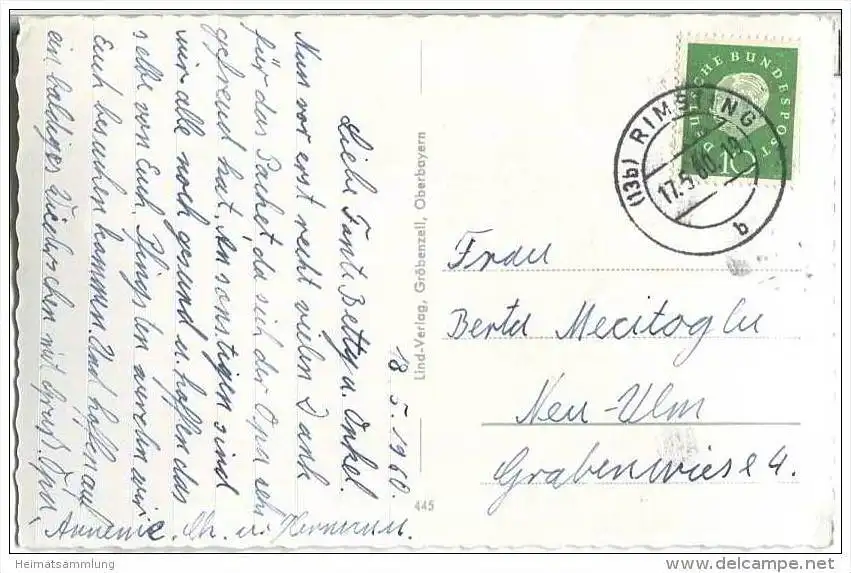 18.5.1960.
Liebe Tant. Betty u. Onkel.
Nun vor erst recht vielen Dank
für das Packet da sich der Opa sehr
gefreud hat. Ansonstigen sind
wir alle noch gesund u. hoffen das
selbe von Euch. Pfingsten werden wir
Euch besuchen kommen. Und hoffen auf
ein baldiges Wiedersehn mit Gruß. Opa,
Annemie. u. Hermann.
Lind-Verlag, Gröbenzell, Oberbayern
445
DEUTSCHE BUNDESPOST
10
(13b) RIMSTING
17.5.60.19
b
Frau
Berta Mecitoglu
Neu-Ulm
Grabenwiese 4.
Heimatsammlung
delcampe.net